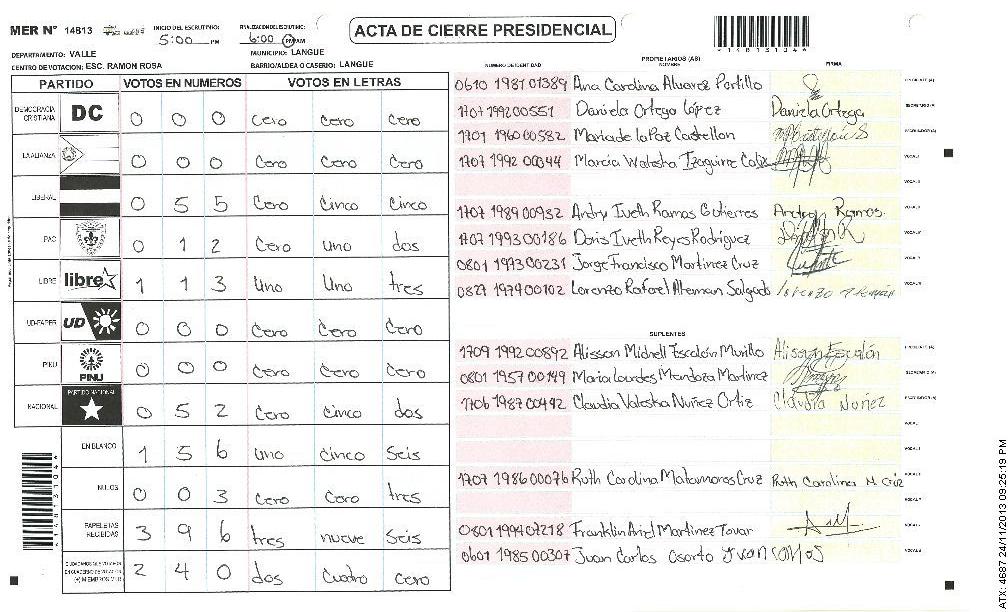 MER Nº 14813
INICIO DEL ESCRUTINIO: 5:00 PM
FINALIZACION DEL ESCRUTINIO: 6:00 PM AM
ACTA DE CIERRE PRESIDENCIAL
1 4 8 1 3 1 0 4 4
DEPARTAMENTO: VALLE
MUNICIPIO: LANGUE
CENTRO DE VOTACION: ESC. RAMON ROSA
BARRIO/ALDEA O CASERIO: LANGUE
PARTIDO VOTOS EN NUMEROS VOTOS EN LETRAS
DEMOCRACIA CRISTIANA DC 0 0 0 Cero Cero Cero
LA ALIANZA 0 0 0 Cero Cero Cero
LIBERAL 0 5 5 Cero Cinco Cinco
PAC 0 1 2 Cero uno dos
LIBRE libre 1 1 3 Uno Uno tres
UD-FAPER UD 0 0 0 Cero Cero Cero
PINU PINU 0 0 0 Cero Cero Cero
NACIONAL PARTIDO NACIONAL 0 5 2 Cero cinco dos
EN BLANCO 1 5 6 uno cinco Seis
NULOS 0 0 3 Cero Cero tres
PAPELETAS RECIBIDAS 3 9 6 tres nueve Seis
CIUDADANOS QUE VOTARON EN CUADERNO DE VOTACION (+) MIEMBROS MER 2 4 0 dos Cuatro Cero
PROPIETARIOS (AS)
NUMERO DE IDENTIDAD NOMBRE FIRMA
0610 1981 01389 Ana Carolina Alvarez Portillo PRESIDENTE (A)
1707 1992 00551 Daniela Ortega López Daniela Ortega SECRETARIO (A)
1701 1960 00582 Maria de la Paz Castellon ESCRUTADOR (A)
1707 1992 00044 Marcia Waleska Izaguirre VOCAL I
VOCAL II
1707 1989 00932 Andry Iveth Ramos Gutierres Ramos
1707 1993 00186 Doris Iveth Reyes Rodríguez
0801 1973 00231 Jorge Francisco Martinez Cruz
0827 1979 00102 Lorenzo Rafael Aleman Salgado
SUPLENTES
1709 1992 00892 Alisson Michell Escalón Murillo Alisson Escalón PRESIDENTE (A)
0801 1957 00149 Maria Lourdes Mendoza Martinez SECRETARIO (A)
1706 1987 00492 Claudia Valeska Nuñez Ortiz Claudia Nuñez ESCRUTADOR (A)
VOCAL I
VOCAL II
1707 1986 00076 Ruth Carolina Matamoros Cruz Ruth Carolina M Cruz
0801 1994 07218 Franklin Ariel Martinez Tovar
0601 1985 00307 Juan Carlos Osorto
ATX: 4687 24/11/2013 09:25:19 PM